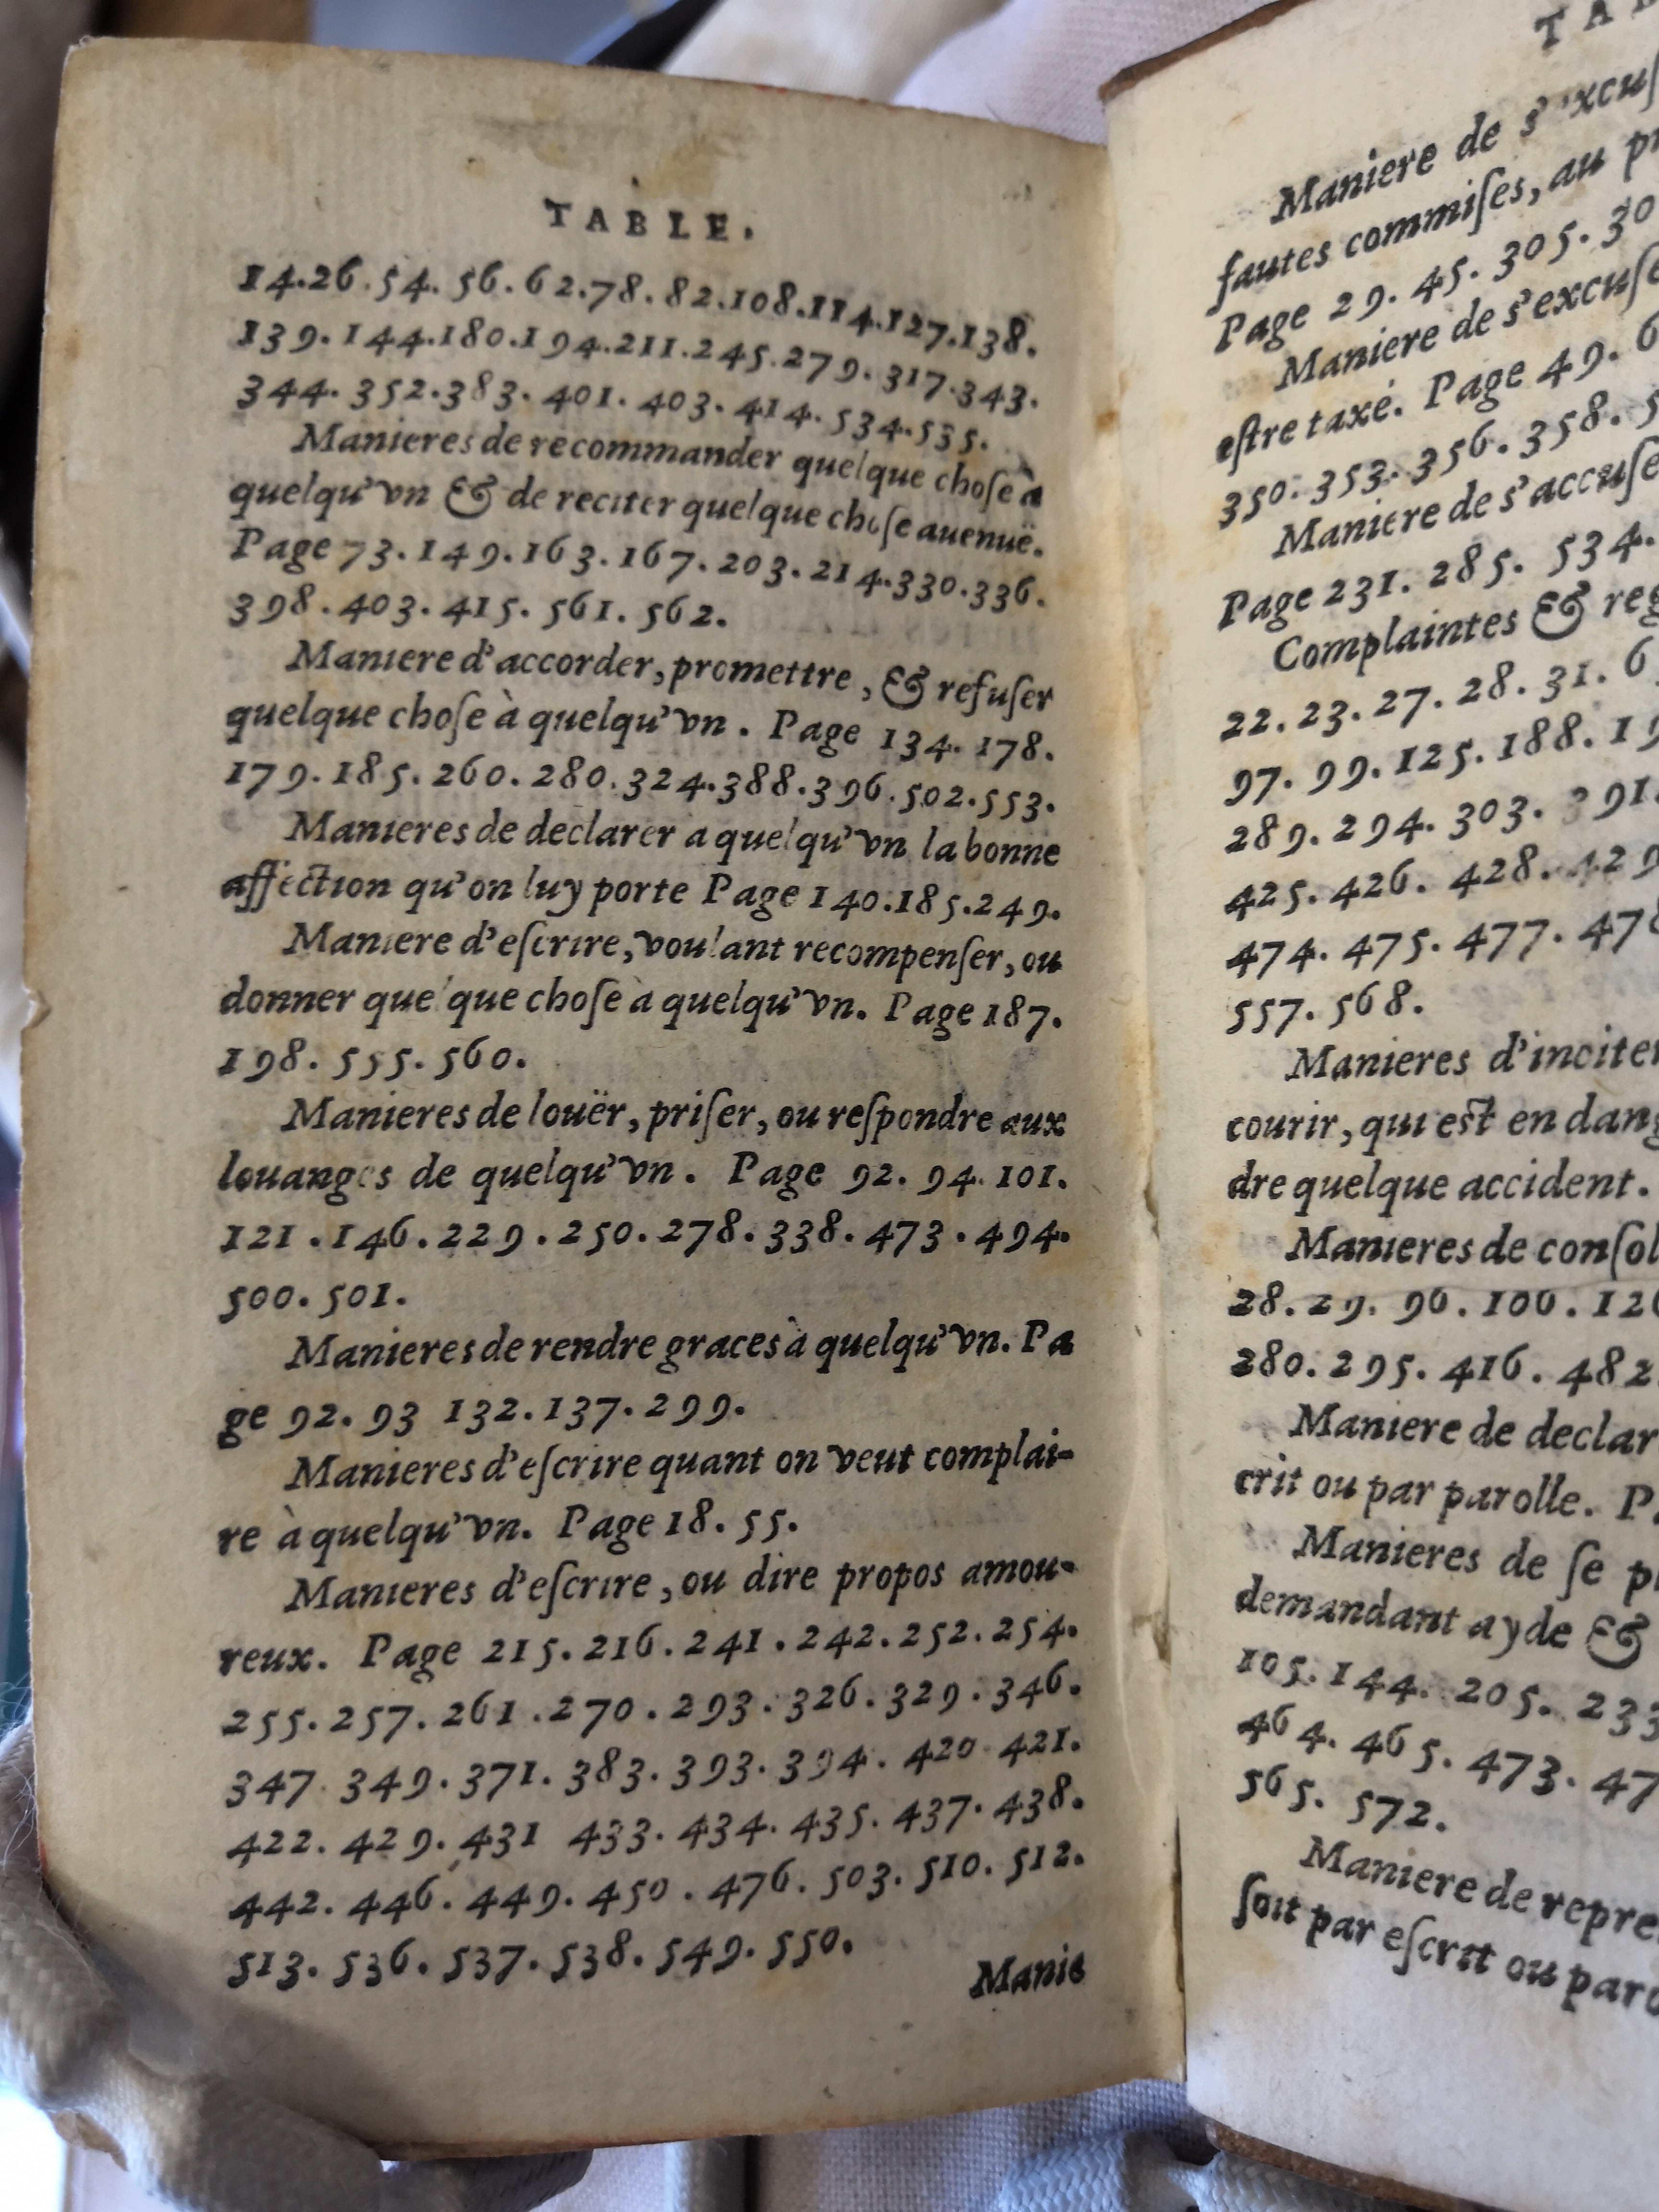 TABLE.
14.26.54. 56.62.78.82.108.114.127.138.
139.144.180.194.211.245.279.317.343.
344. 352.383. 401. 403. 414. 534.535.
Manieres de recommander quelque choſe à
quelqu'vn & de reciter quelque choſe auenuë.
Page 73.149.163.167.203.214.330.336.
398.403.415. 561. 562.
Maniere d'accorder, promettre, & refuſer
quelque choſe à quelqu'vn. Page 134. 178.
179.185.260.280.324.388.396.502.553.
Manieres de declarer a quelqu'vn la bonne
affection qu'on luy porte Page 140.185.249.
Maniere d'eſcrire, voulant recompenſer, ou
donner quelque choſe à quelqu'vn. Page 187.
198. 555. 560.
Manieres de louër, priſer, ou reſpondre aux
louanges de quelqu'vn. Page 92. 94. 101.
121.146.229.250.278.338.473.494.
500. 501.
Manieres de rendre graces à quelqu'vn. Pa
ge 92. 93 132.137.299.
Manieres d'eſcrire quant on veut complai-
re à quelqu'vn. Page 18. 55.
Manieres d'eſcrire, ou dire propos amou-
reux. Page 215.216.241.242.252.254.
255.257.261.270.293.326.329.346.
347. 349.371.383.393.394. 420. 421.
422. 429. 431 433. 434. 435. 437. 438.
442. 446. 449. 450. 476. 503. 510. 512.
513. 536. 537. 538. 549. 550.
Manie
Maniere de
fautes commiſes, au
Page 29. 45. 305.
Maniere de
eſtre taxé. Page 49.
350. 353. 356. 358.
Maniere de
Page 231. 285. 534.
Complaintes &
22. 23. 27. 28. 31.
97. 99. 125. 188.
289. 294. 303. 391.
425. 426. 428. 429
474. 475. 477.
557. 568.
Manieres
courir, qui eſt en
dre quelque accident.
Manieres de
28. 29. 96. 100.
280. 295. 416. 482.
Maniere de
crit ou par parolle.
Manieres de ſe
demandant ayde &
105. 144. 205.
464. 465. 473.
565. 572.
Maniere de
ſoit par eſcrit ou